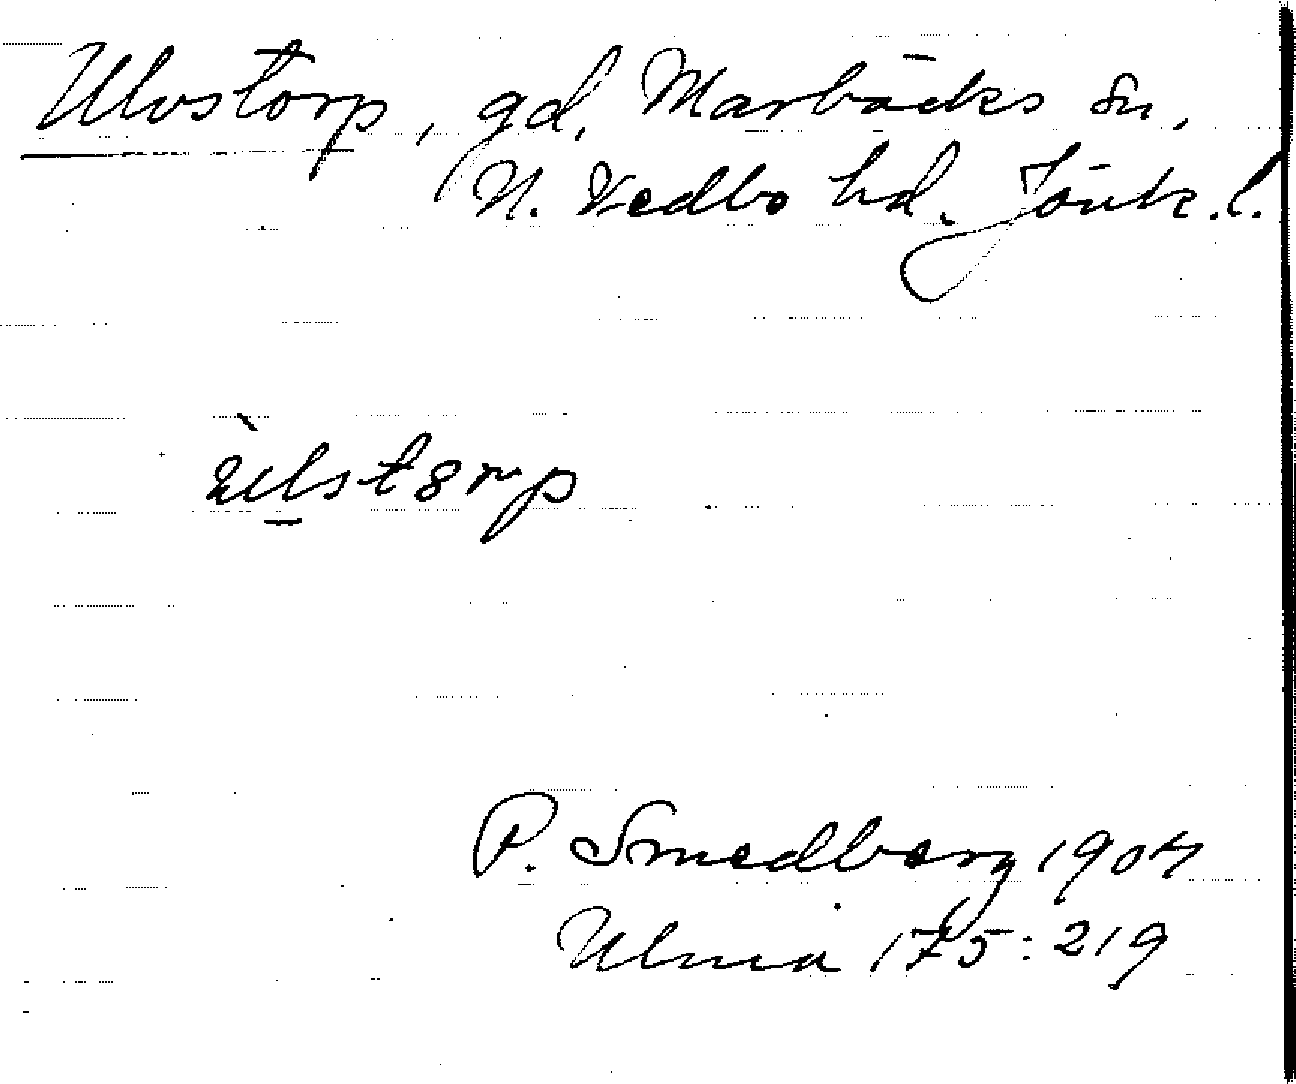 Ulvstorp, gd, Marbäcks sn,
N. Vedbo hd. Jönk. l.
P. Smedberg 1904
Ulma 175:219